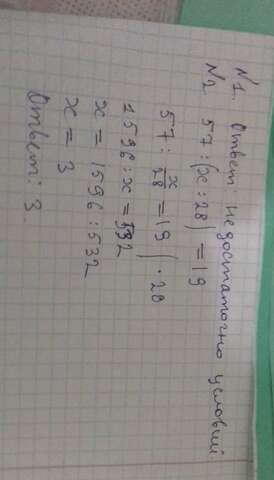 N1. Ответ: недостаточно условий.
N2. 57 : (x : 28) = 19
57 : x/28 = 19 | · 28
1596 : x = 532
x = 1596 : 532
x = 3
Ответ: 3.